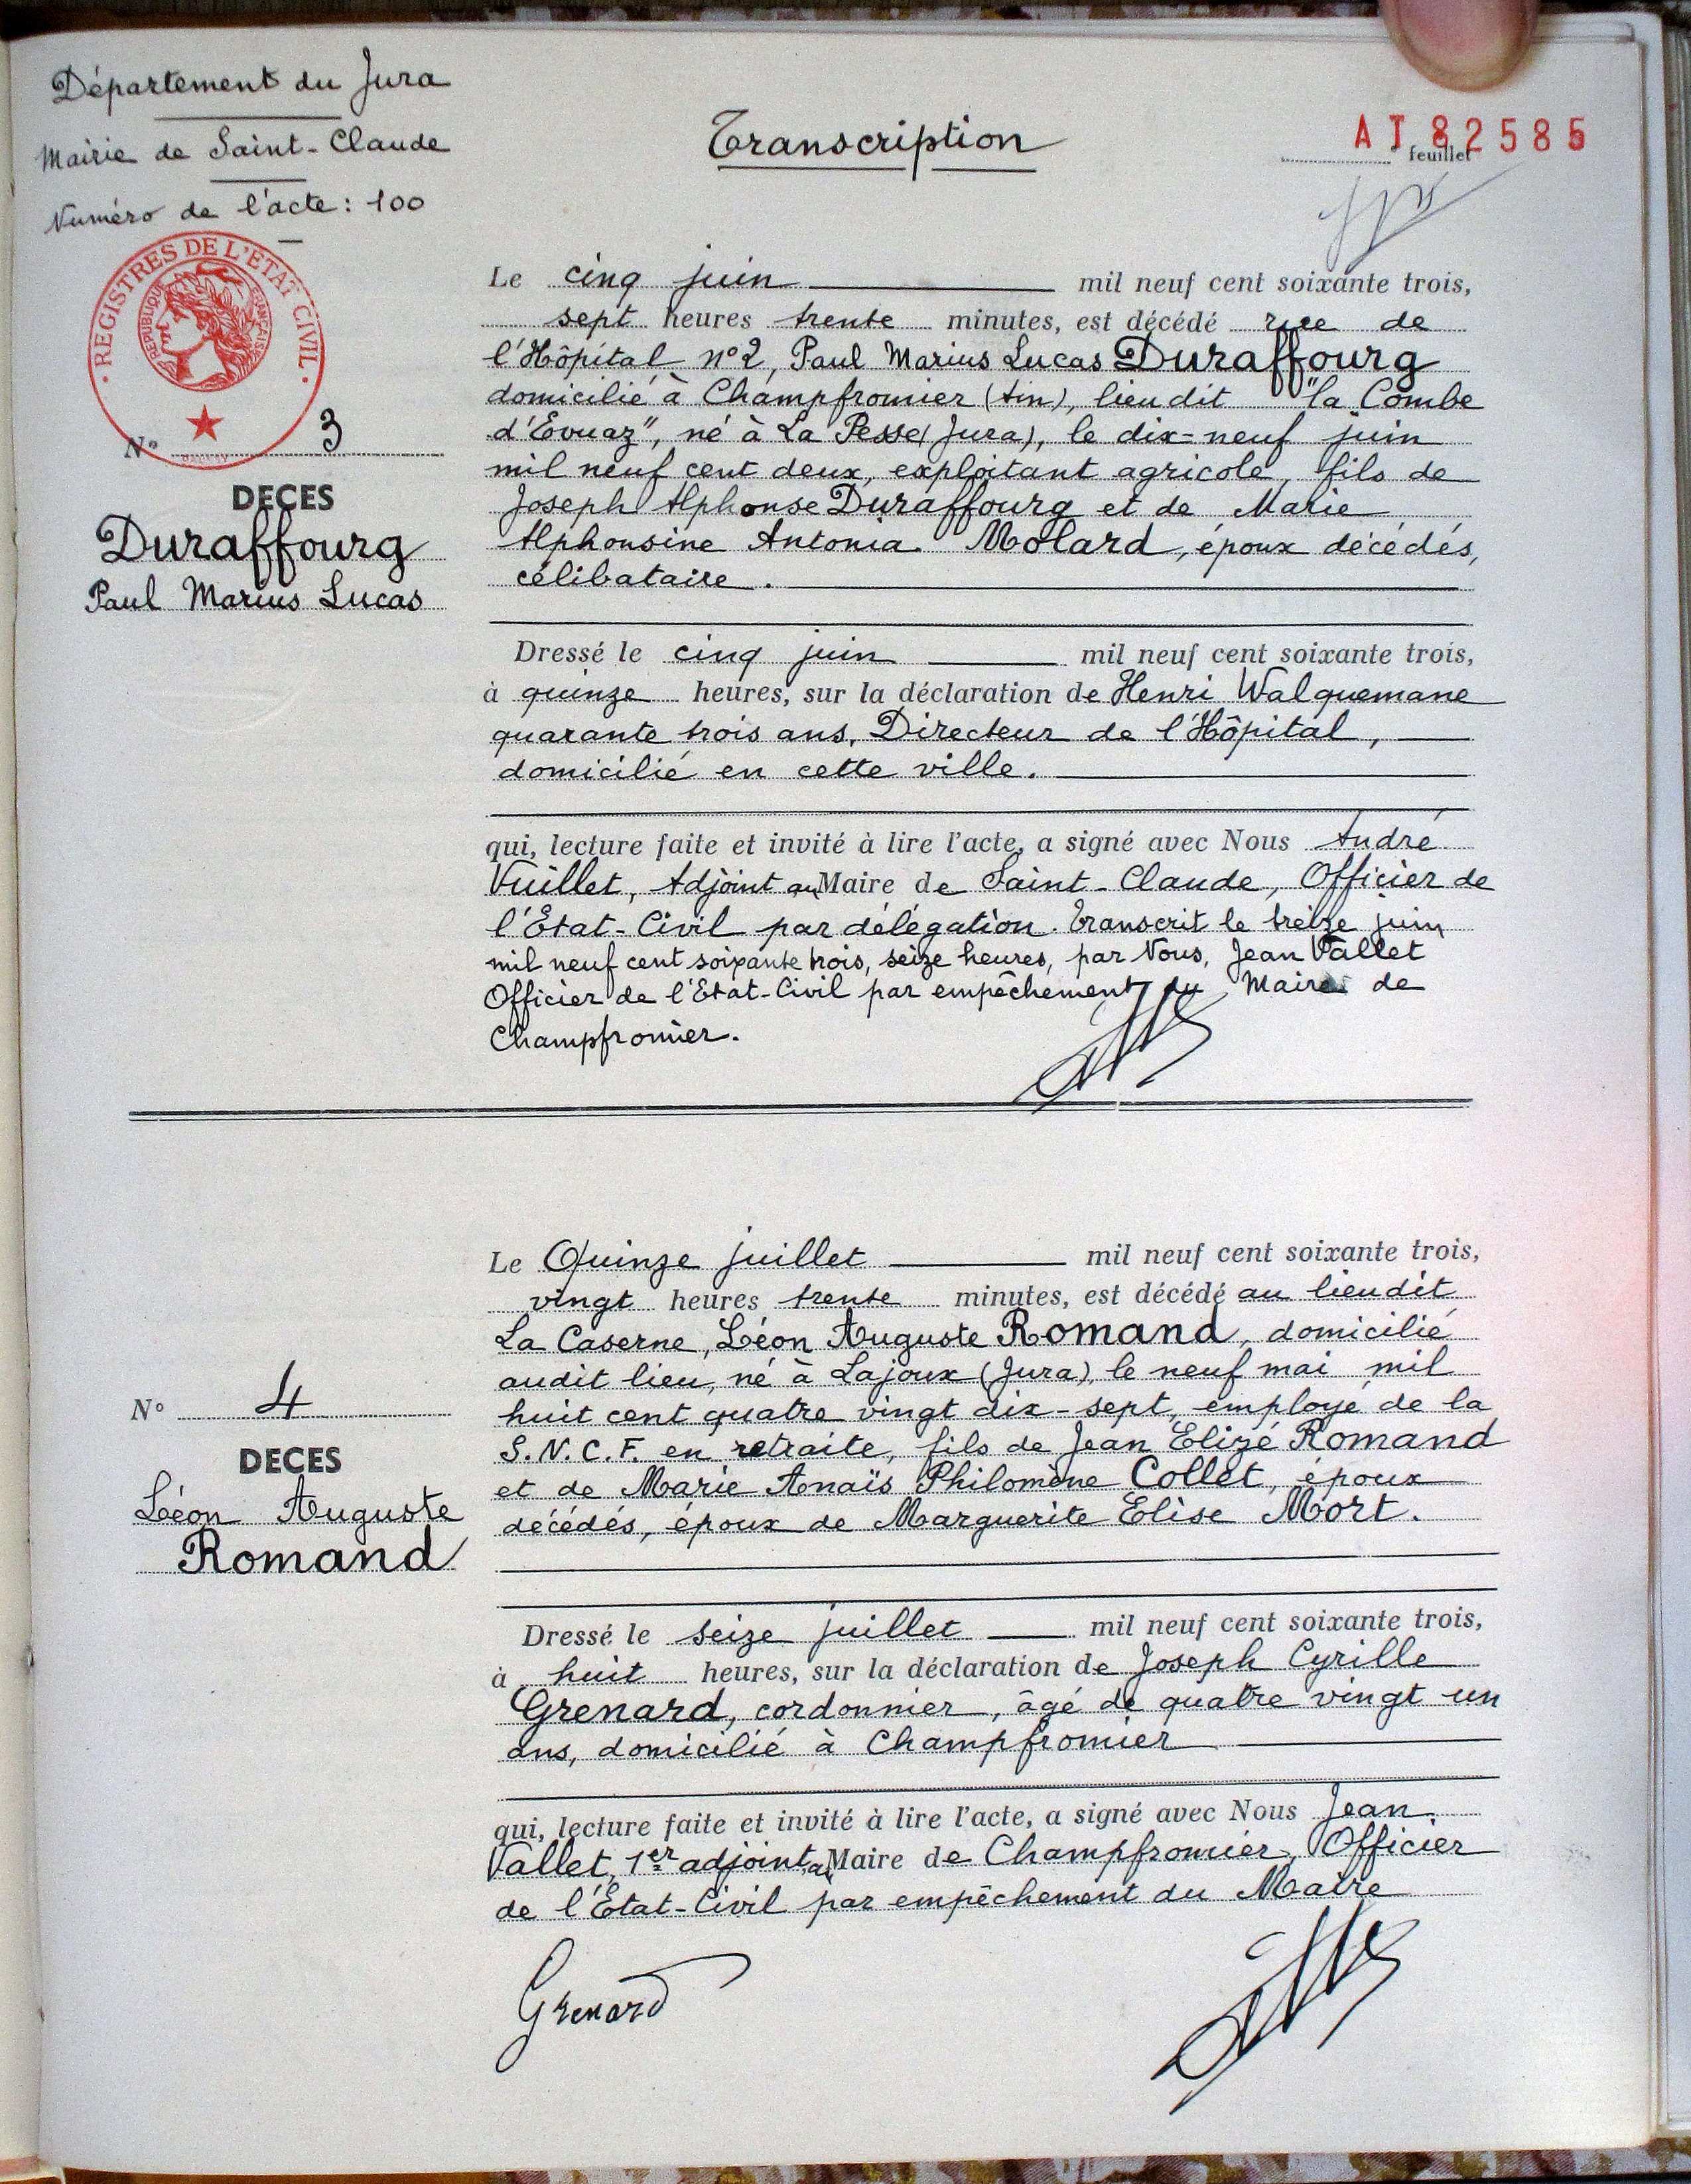 Département du Jura
Mairie de Saint-Claude
Numéro de l'acte : 100
Transcription
AT 82585
feuillet
REGISTRES DE L'ETAT CIVIL
REPUBLIQUE FRANÇAISE
N° 3
DECES
Duraffourg
Paul Marius Lucas
Le cinq juin mil neuf cent soixante trois,
sept heures trente minutes, est décédé rue de
l'Hôpital n°2, Paul Marius Lucas Duraffourg
domicilié à Champfromier (Ain), lieudit "la Combe
d'Evuaz", né à La Pesse (Jura), le dix-neuf juin
mil neuf cent deux, exploitant agricole, fils de
Joseph Alphonse Duraffourg et de Marie
Alphonsine Antonia Molard, époux décédés,
célibataire.
Dressé le cinq juin mil neuf cent soixante trois,
à quinze heures, sur la déclaration de Henri Walquemane
quarante trois ans, Directeur de l'Hôpital,
domicilié en cette ville.
qui, lecture faite et invité à lire l'acte, a signé avec Nous André
Vuillet, Adjoint au Maire de Saint-Claude, Officier de
l'Etat-Civil par délégation. Transcrit le treize juin
mil neuf cent soixante trois, seize heures, par Nous, Jean Vallet
Officier de l'Etat-Civil par empêchement du Maire de
Champfromier.
N° 4
DECES
Léon Auguste
Romand
Le Quinze juillet mil neuf cent soixante trois,
vingt heures trente minutes, est décédé au lieudit
La Caserne, Léon Auguste Romand, domicilié
audit lieu, né à Lajoux (Jura), le neuf mai mil
huit cent quatre vingt dix-sept, employé de la
S.N.C.F. en retraite, fils de Jean Elizé Romand
et de Marie Anaïs Philomène Collet, époux
décédés, époux de Marguerite Elise Mort.
Dressé le seize juillet mil neuf cent soixante trois,
à huit heures, sur la déclaration de Joseph Cyrille
Grenard, cordonnier, âgé de quatre vingt un
ans, domicilié à Champfromier
qui, lecture faite et invité à lire l'acte, a signé avec Nous Jean
Vallet, 1er adjoint au Maire de Champfromier, Officier
de l'Etat-Civil par empêchement du Maire
Grenard